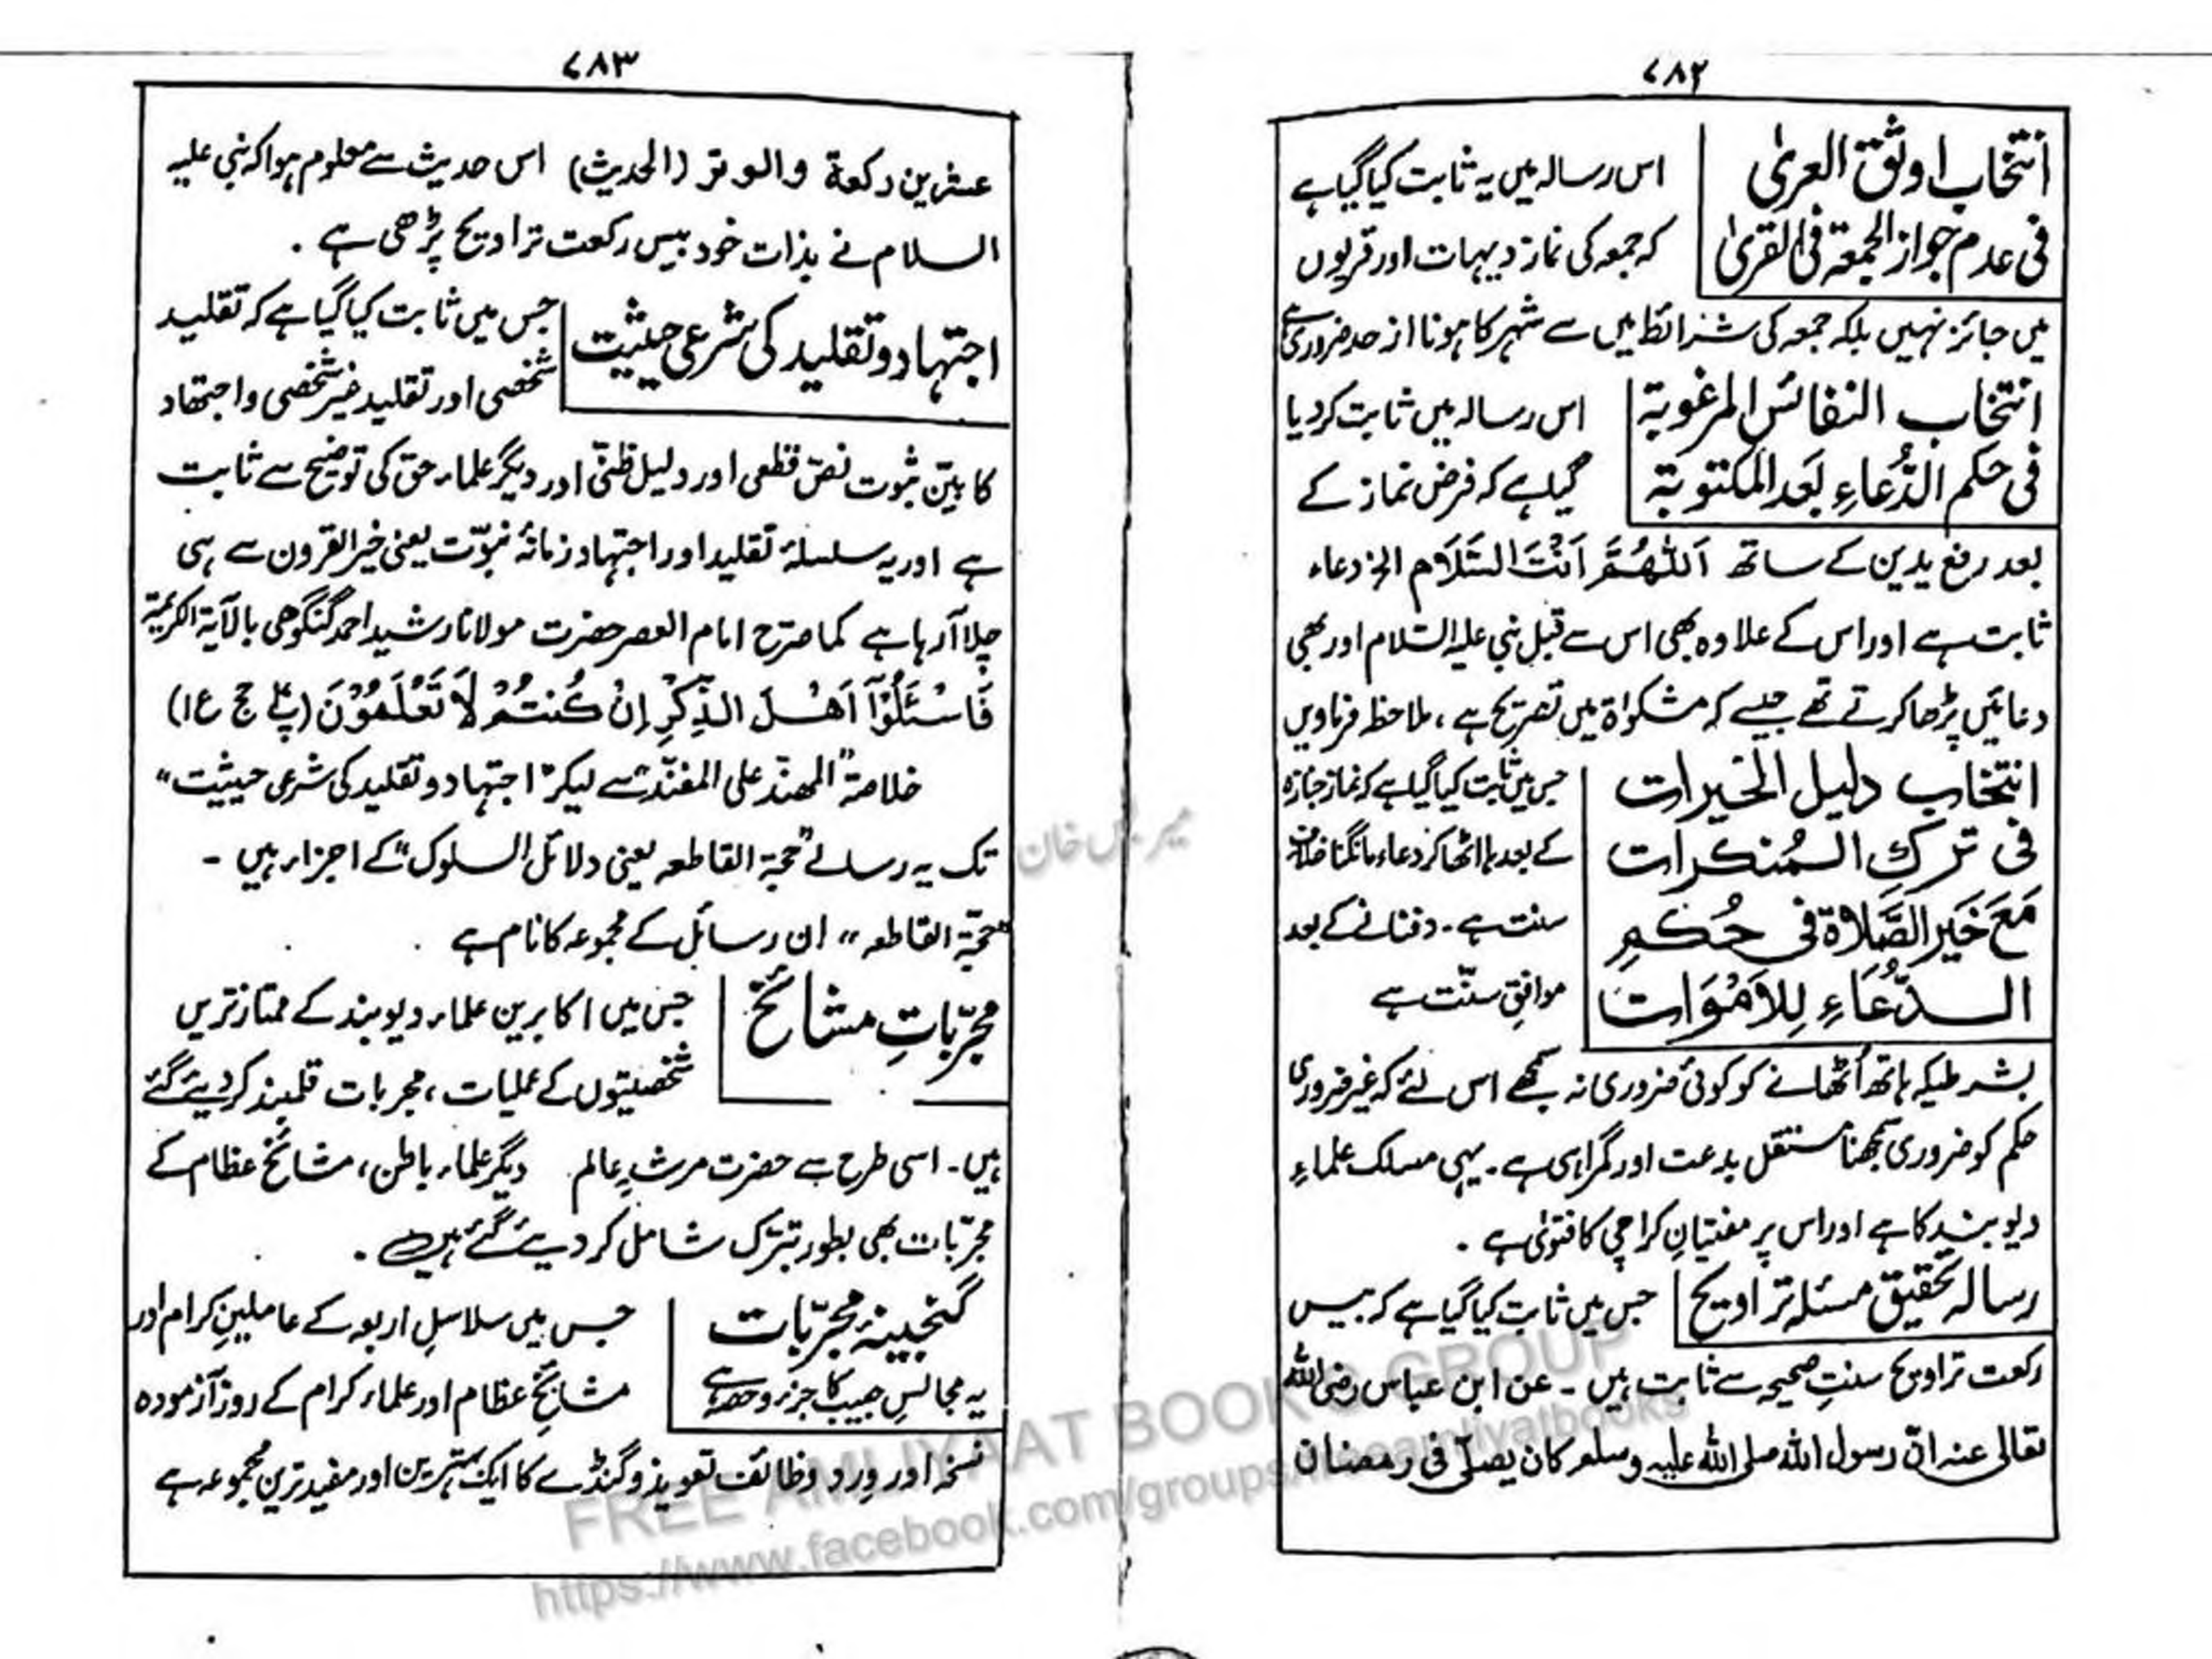 ۷۸۲
انتخاب اوثق العریٰ
فی عدم جواز الجمعۃ فی القریٰ
اس رسالہ میں یہ ثابت کیا گیا ہے
کہ جمعہ کی نماز دیہات اور قریوں
میں جائز نہیں بلکہ جمعہ کی شرائط میں سے شہر کا ہونا از حد ضروری ہے
انتخاب النفائس المرغوبۃ
فی حکم الدُّعاءِ بَعد المکتوبۃ
اس رسالہ میں ثابت کر دیا
گیا ہے کہ فرض نماز کے
بعد رفع یدین کے ساتھ اَللّٰھُمَّ اَنْتَ السَّلَام الخ دعاء
ثابت ہے اور اس کے علاوہ بھی اس سے قبل نبی علیہ السّلام اور بھی
دعائیں پڑھا کرتے تھے جیسے کہ مشکوٰۃ میں تصریح ہے، ملاحظہ فرماویں
انتخاب دلیل الخیرات
فی ترکِ المُنکرات
مَعَ خَیر الصَّلاۃ فی حُکمِ
الدُّعَاءِ لِلاَمْوَات
جس میں ثابت کیا گیا ہے کہ نماز جنازہ
کے بعد ہاتھ اٹھا کر دعاء مانگنا خلاف
سنت ہے۔ دفنانے کے بعد
موافقِ سنّت ہے
بشرطیکہ ہاتھ اُٹھانے کو کوئی ضروری نہ سمجھے اس لئے کہ غیر ضروری
حکم کو ضروری سمجھنا مستقل بدعت اور گمراہی ہے۔ یہی مسلک علماءِ
دیوبند کا ہے اور اس پر مفتیانِ کراچی کا فتویٰ ہے۔
رسالہ تحقیق مسئلہ تراویح
جس میں ثابت کیا گیا ہے کہ بیس
رکعت تراویح سنتِ صحیحہ سے ثابت ہیں۔ عن ابن عباس رضی اللہ
تعالی عنہ انّ رسول اللہ صلی اللہ علیہ وسلم کان یصلّی فی رمضان
۷۸۳
عشرین رکعۃ والوتر (الحدیث) اس حدیث سے معلوم ہوا کہ نبی علیہ
السلام نے بذات خود بیس رکعت تراویح پڑھی ہے۔
اجتہاد و تقلید کی شرعی حیثیت
جس میں ثابت کیا گیا ہے کہ تقلید
شخصی اور تقلید غیر شخصی و اجتھاد
کا بیّن ثبوت نصّ قطعی اور دلیل ظنّی اور دیگر علماء حق کی توضیح سے ثابت
ہے اور یہ سلسلۂ تقلید اور اجتہاد زمانۂ نبوّت یعنی خیر القرون سے ہی
چلا آ رہا ہے کما صرّح امام العصر حضرت مولانا رشید احمد گنگوھی بالآیۃ الکریمۃ
فَاسْئَلُوْآ اَھْلَ الذِّکْرِ اِنْ کُنْتُمْ لَا تَعْلَمُوْنَ (پ۱۷ ع۱)
خلاصۃ "المھند علی المفنّد" سے لیکر "اجتہاد و تقلید کی شرعی حیثیت"
تک یہ رسالے "حجۃ القاطعہ یعنی دلائل السلوک" کے اجزاء ہیں۔
"حجّۃ القاطعہ" ان رسائل کے مجموعہ کا نام ہے
مجرّباتِ مشائخ
جس میں اکابرین علماء دیوبند کے ممتاز ترین
شخصیتوں کے عملیات، مجربات قلمبند کر دیئے گئے
ہیں۔ اسی طرح سے حضرت مرشدِ عالم دیگر علماء باطن، مشائخ عظام کے
مجرّبات بھی بطور تبرّک شامل کر دیئے گئے ہیں۔
گنجینۂ مجرّبات
یہ مجالس حبیب کا جزو حصہ ہے
جس میں سلاسلِ اربعہ کے عاملینِ کرام اور
مشائخِ عظام اور علماء کرام کے روز آزمودہ
نسخہ اور وِرد وظائف تعویذ و گنڈے کا ایک بہترین اور مفید ترین مجموعہ ہے
FREE AMLIYAAT BOOKS GROUP
https://www.facebook.com/groups/freeamliyatbooks